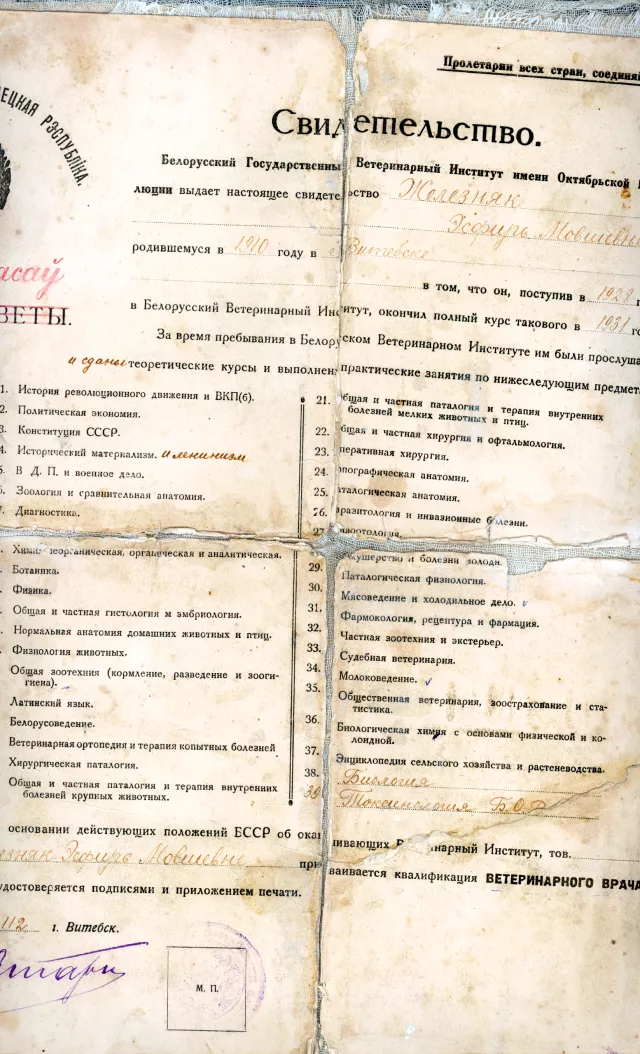 Пролетарии всех стран, соединяй
ЕЦКАЯ РЭСПУБЛІКА.
Свидетельство.
Белорусский Государственный Ветеринарный Институт имени Октябрьской
люции выдает настоящее свидетельство Железняк
Эсфирь Мовшевне
родившемуся в 1910 году в Витебске
асаў
ВЕТЫ.
в том, что он, поступив в 1928
в Белорусский Ветеринарный Институт, окончил полный курс такового в 1931 го
За время пребывания в Белорусском Ветеринарном Институте им были прослуша
и сданы теоретические курсы и выполнены практические занятия по нижеследующим предмета
1. История революционного движения и ВКП(б).
2. Политическая экономия.
3. Конституция СССР.
4. Исторический материализм. и ленинизм
5. В Д. П. и военное дело.
6. Зоология и сравнительная анатомия.
7. Диагностика.
Химия неорганическая, органическая и аналитическая.
Ботаника.
Физика.
Общая и частная гистология м эмбриология.
Нормальная анатомия домашних животных и птиц.
Физиология животных.
Общая зоотехния (кормление, разведение и зооги-
гиена).
Латинский язык.
Белорусоведение.
Ветеринарная ортопедия и терапия копытных болезней
Хирургическая паталогия.
Общая и частная паталогия и терапия внутренних
болезней крупных животных.
21. бщая и частная паталогия и терапия внутренних
болезней мелких животных и птиц.
22. бщая и частная хирургия и офтальмология.
23. перативная хирургия.
24. опографическая анатомия.
25. аталогическая анатомия.
26. аразитология и инвазионные болезни.
27 пизоотология.
кушерство и болезни молодн.
29. Паталогическая физиология.
30. Мясоведение и холодильное дело.
31. Фармокология, рецептура и фармация.
32. Частная зоотехния и экстерьер.
33. Судебная ветеринария.
34. Молоковедение.
35. Общественная ветеринария, зоострахование и ста-
тистика.
36. Биологическая химия с основами физической и ко-
лоидной.
37. Энциклопедия сельского хозяйства и растеневодства.
38. Биология
39 Токсикология Б.О.В
основании действующих положений БССР об ока нчивающих Ветеринарный Институт, тов.
езняк Эсфирь Мовшевне присваивается квалификация ВЕТЕРИНАРНОГО ВРАЧА
удостоверяется подписями и приложением печати.
112 г. Витебск.
М. П.